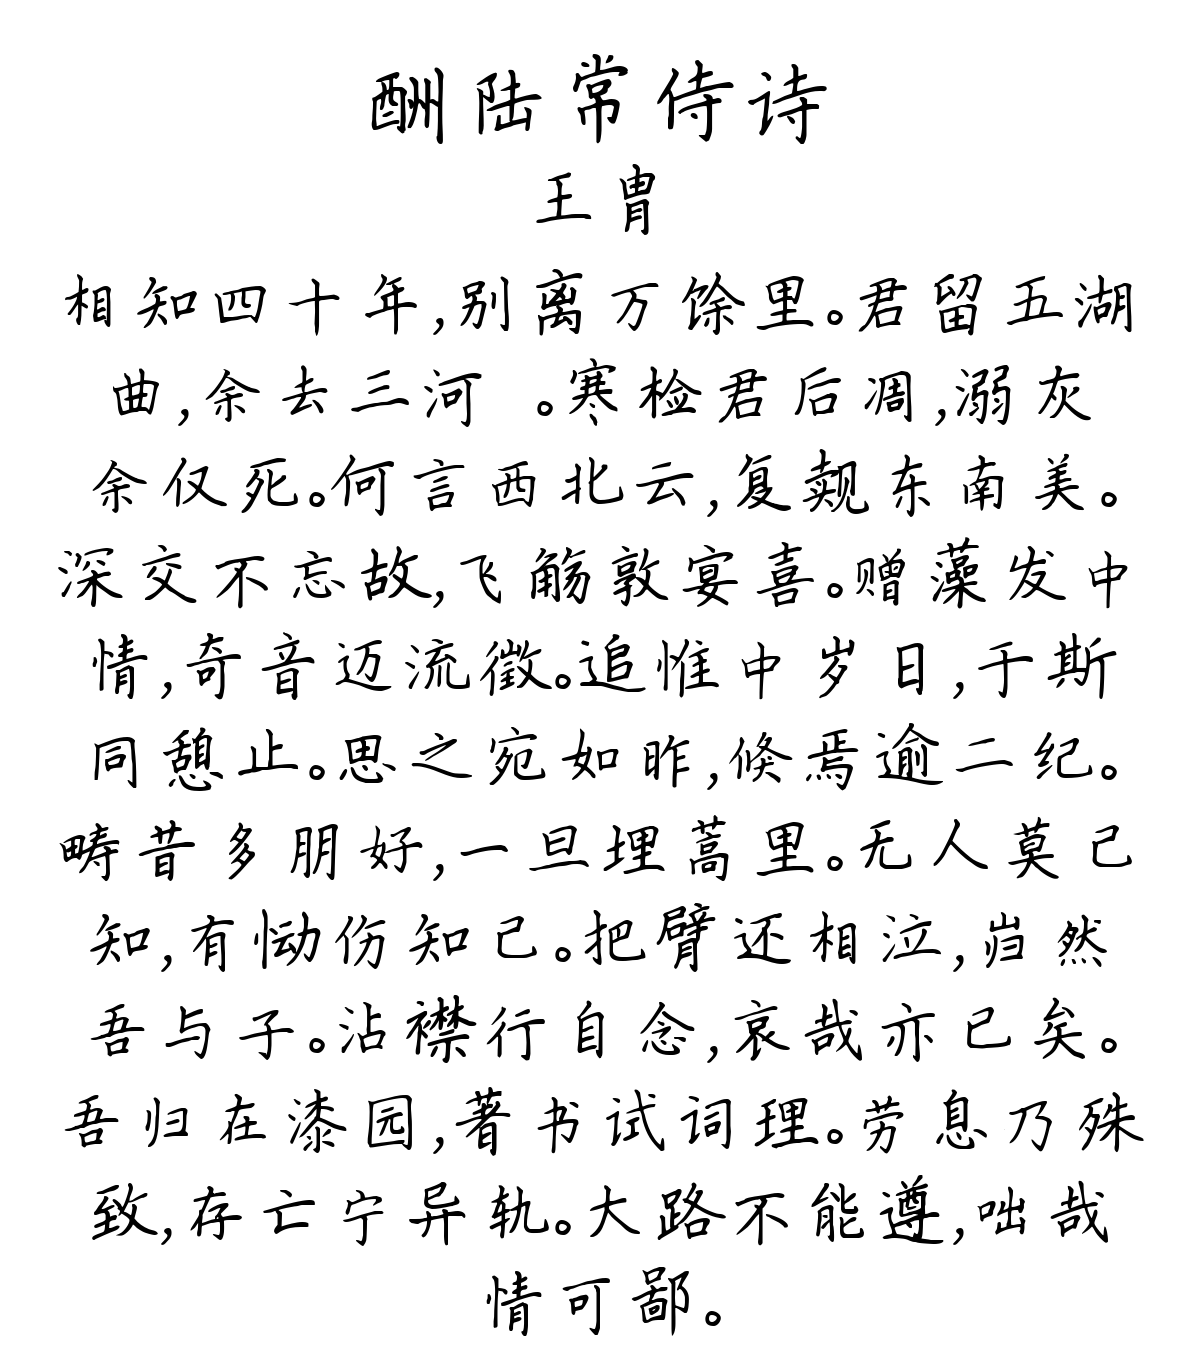 酬陆常侍诗
王胄
相知四十年,别离万馀里。君留五湖
曲,余去三河 。寒检君后凋,溺灰
余仅死。何言西北云,复觌东南美。
深交不忘故,飞觞敦宴喜。赠藻发中
情,奇音迈流徵。追惟中岁日,于斯
同憩止。思之宛如昨,倐焉逾二纪。
畴昔多朋好,一旦埋蒿里。无人莫己
知,有恸伤知己。把臂还相泣,岿然
吾与子。沾襟行自念,哀哉亦已矣。
吾归在漆园,著书试词理。劳息乃殊
致,存亡宁异轨。大路不能遵,咄哉
情可鄙。